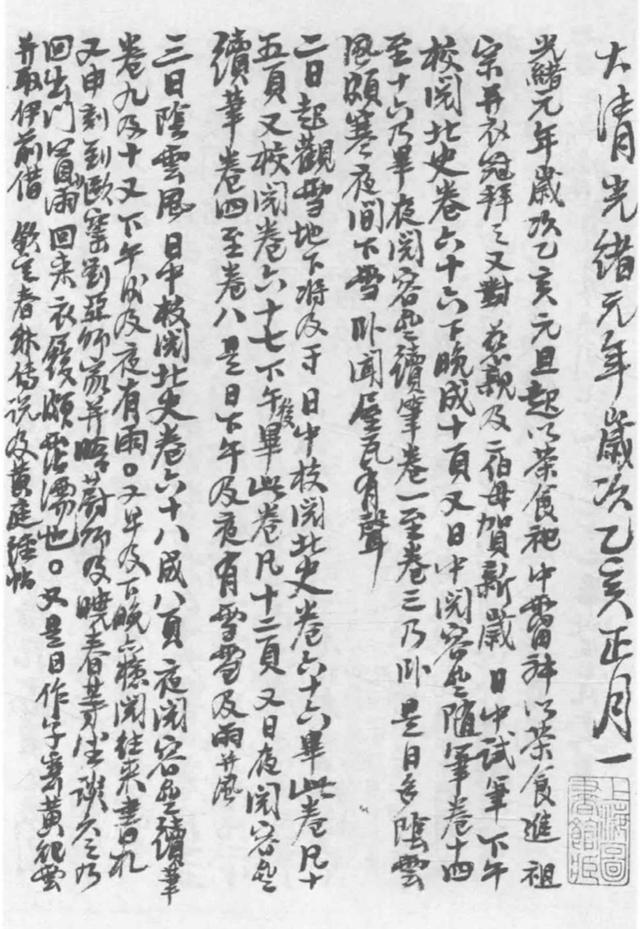 大清光緒元年歲次乙亥正月一
上海圖書館藏
光緒元年歲次乙亥元旦起以茶食祀中霤神以茶食進 祖
宗并衣冠拜之又對 慈親及二伯母賀新歲 日中試筆下午
校閱北史卷六十六下晚成十頁又日中閱容齋隨筆卷十四
至十六乃畢夜閱容齋續筆卷一至卷三乃卧是日多陰雲
風頗寒夜間下雪卧聞屋瓦有聲
二日起觀雪地下將及寸 日中校閱北史卷六十六畢此卷凡十
五頁又校閱卷六十七下午後畢此卷凡十二頁又日夜閱容齋
續筆卷四至卷八是日下午及夜有雪雪及雨并風
三日陰雲風 日中校閱北史卷六十八成八頁夜閱容齋續筆
卷九及十又下午及夜有雨○又早及下晚檢閱往來書札
又申刻到歐窰劉亞師家并晤蔚師及曉春等坐談久之乃
回出門冒雨回來衣履頗霑濡也○又是日作字寄黃祀雲
并取伊前借 欽定春秋傳說及黃庭經帖